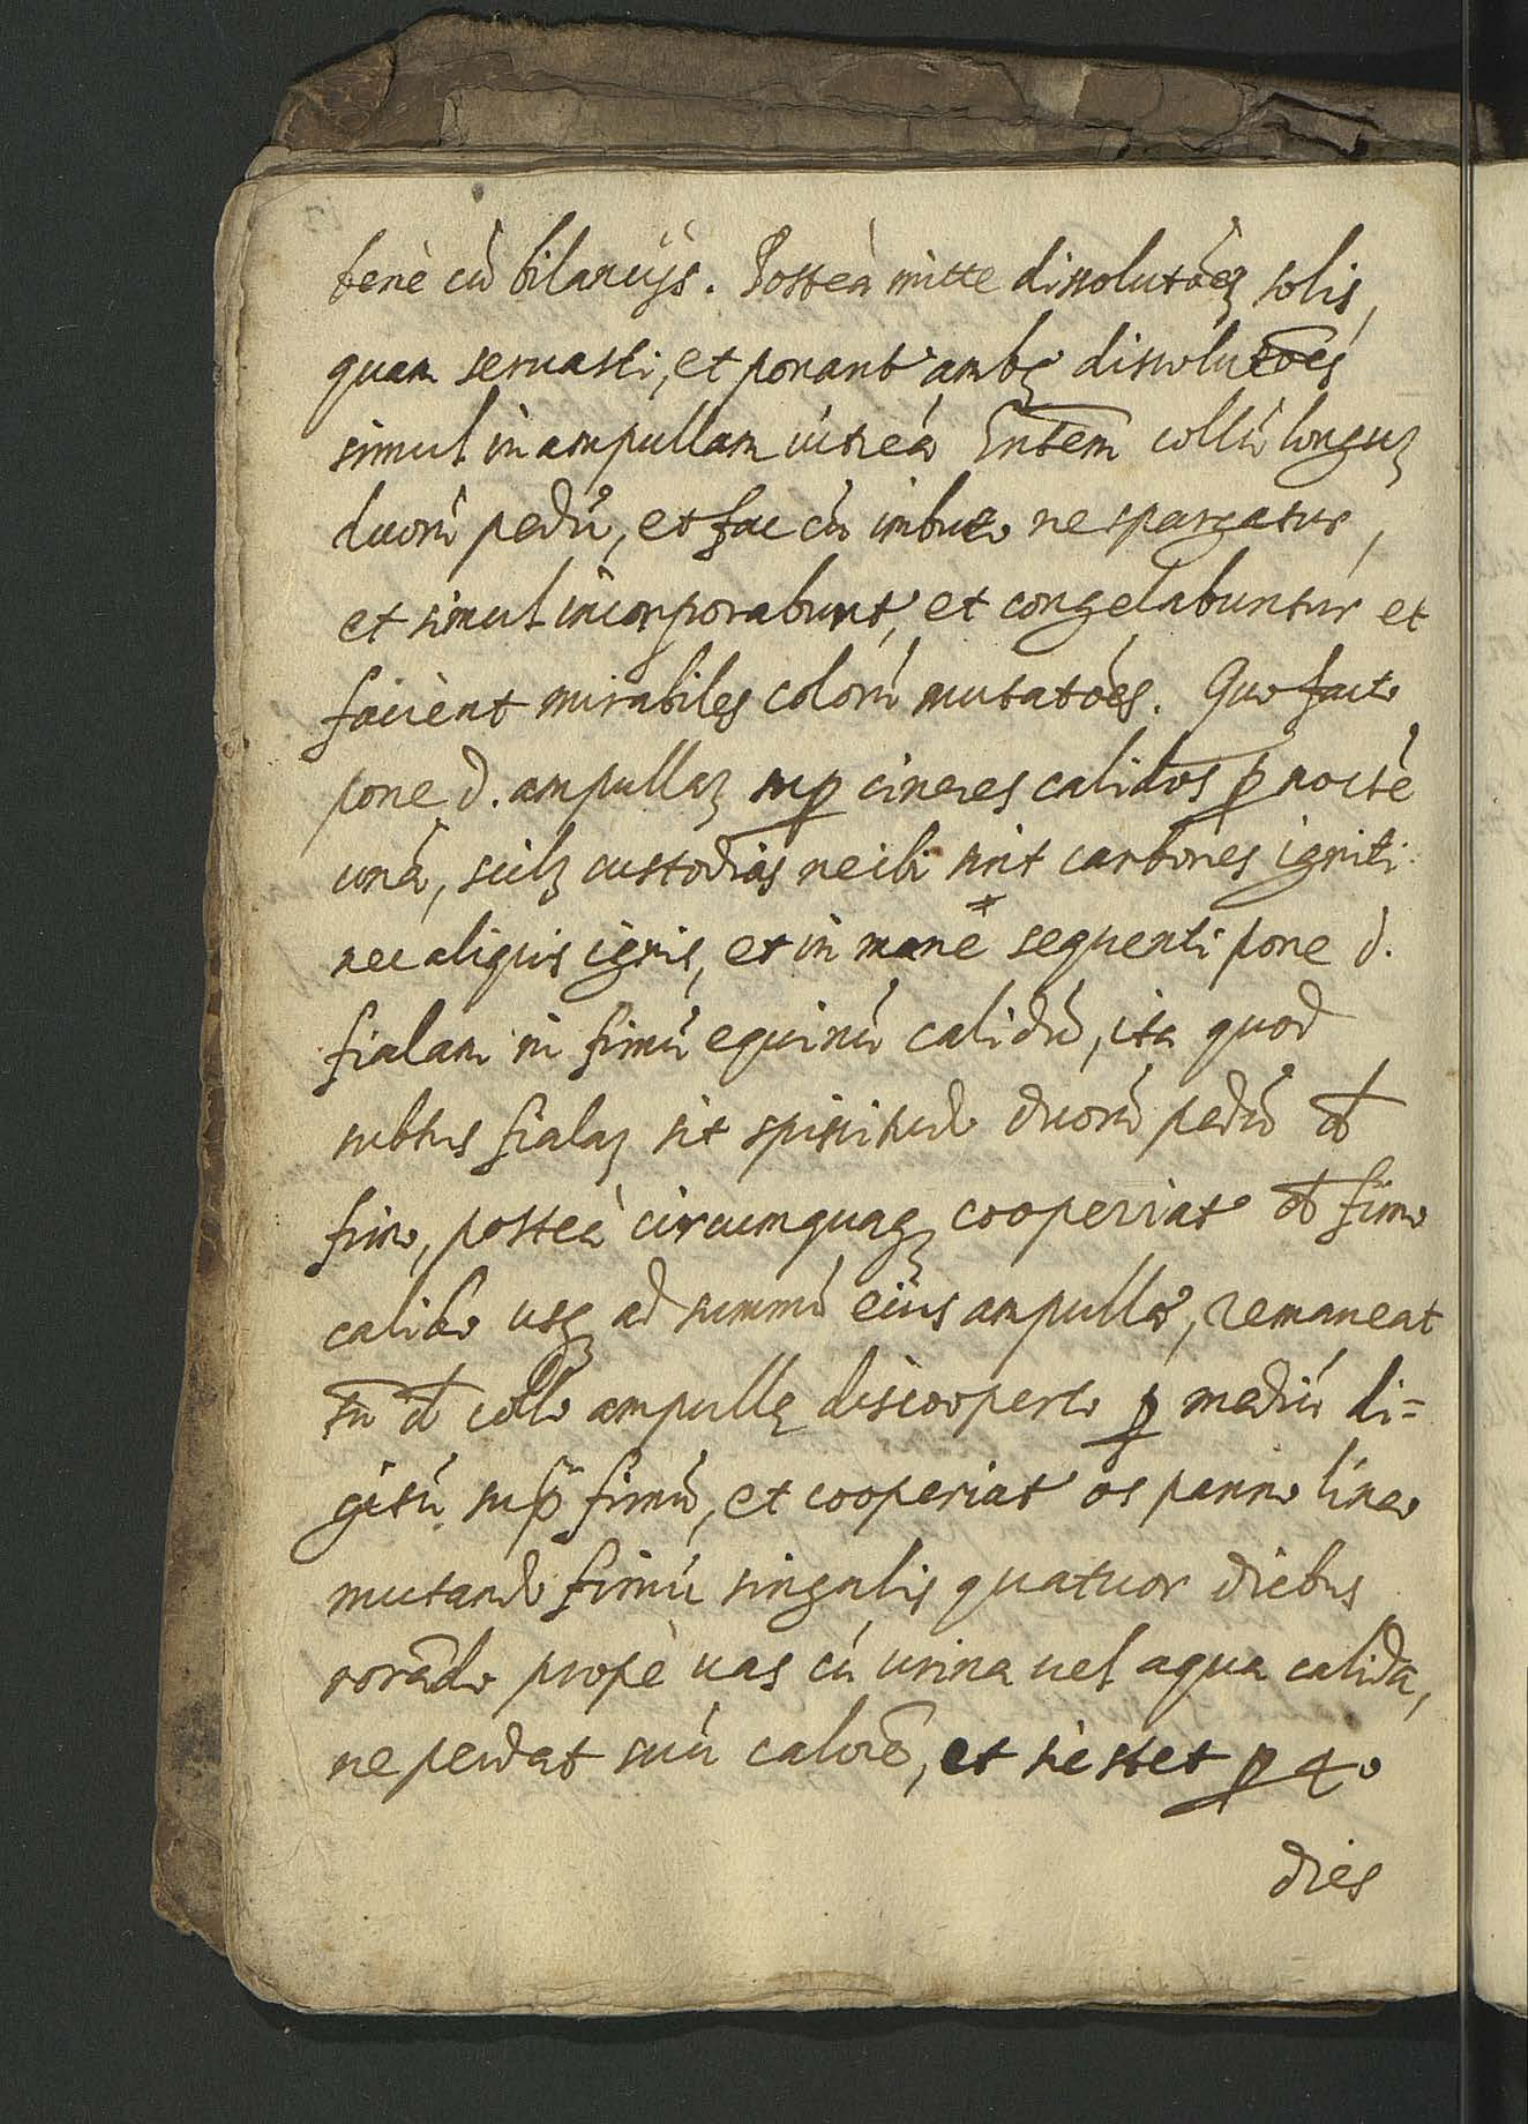 benè cù bilancijs. Posteà mitte dissolutoēꝫ solis,
quam seruasti, et ponant' ambę dissolutoēs
simul in ampullam uitreà h̄ntem collù longuꝫ
duorù pedù, et fac cù imbuto ne spargatur,
et simul incorporabunt', et congelabuntur et
facient mirabiles colorù mutatoēs. Quo facto
pone d. ampullaꝫ suꝑ cineres calidos ꝑ noctè
unà, scilꝫ custodias ne ibi sint carbones igniti
nec aliquis ignis, et in manè * sequenti pone d.
fialam in fimù equinù calidù, ita quod
subtus fialaꝫ sit spissitudo duorù pedù d̄
fimo, posteà circumquaqꝫ cooperiat' d̄ fimo
calido usqꝫ ad summù eius ampullæ, remaneat
tn̄ d̄ collo ampullę discooperto ꝑ mediù di=
gitù sup̄ fimù, et cooperiat' os panno lineo
mutando fimù singulis quatuor diebus
rorādo propè uas cù urina uel aqua calida,
ne perdat suù calorē, et sic stet ꝑ 40
dies